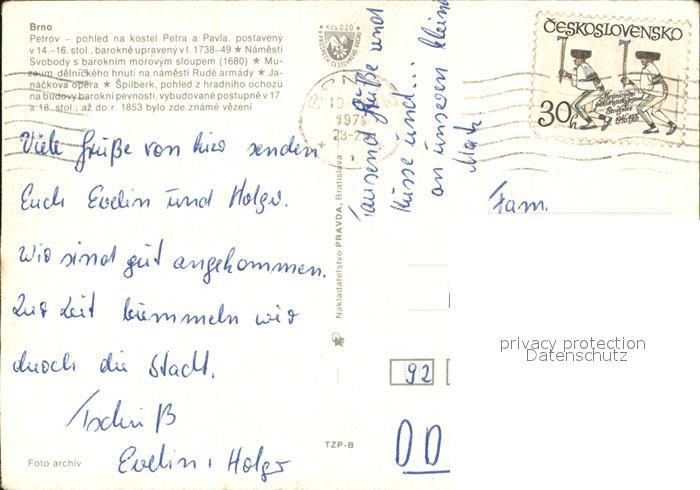 Brno
Petrov – pohled na kostel Petra a Pavla, postavený
v 14.–16. stol., barokně upravený v l. 1738–49 ★ Náměstí
Svobody s barokním morovým sloupem (1680) ★ Mu-
zeum dělnického hnutí na náměstí Rudé armády ★ Ja-
náčkova opera ★ Špilberk, pohled z hradního ochozu
na budovy barokní pevnosti, vybudované postupně v 17.
a 18. stol.; až do r. 1853 bylo zde známé vězení
Viele Grüße von hier senden
Euch Evelin und Holger.
Wir sind gut angekommen.
Zur Zeit bummeln wir
durch die Stadt.
Tschüß
Evelin + Holger
Foto archiv
Kčs 0,20
Nakladatelstvo PRAVDA, Bratislava
TZP-B
Tausend Grüße und
Küsse und...
an unseren kleinen
ČESKOSLOVENSKO
30h
Fam.
92
DD
privacy protection
Datenschutz